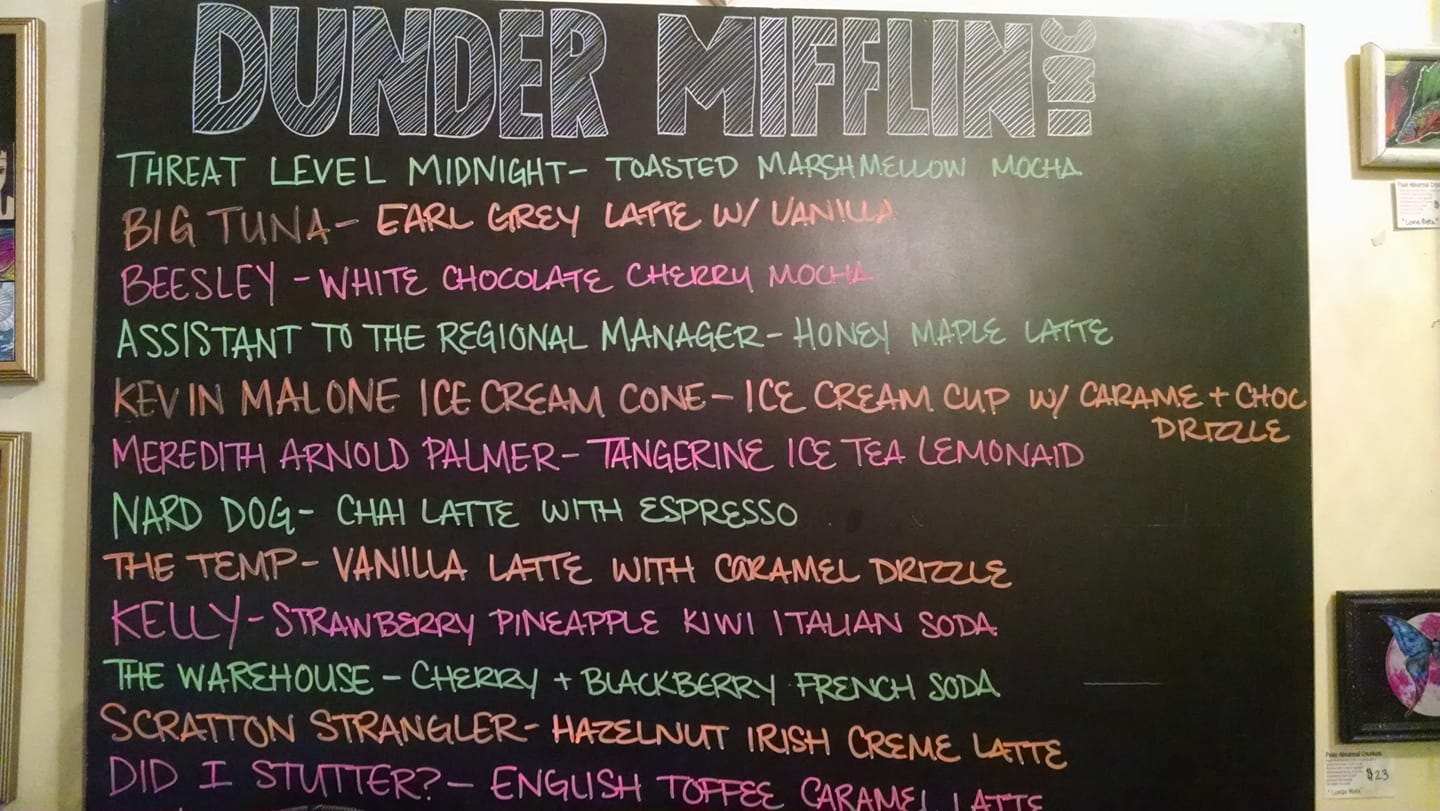 DUNDER MIFFLIN INC
THREAT LEVEL MIDNIGHT- TOASTED MARSHMELLOW MOCHA
BIG TUNA- EARL GREY LATTE W/ VANILLA
BEESLEY - WHITE CHOCOLATE CHERRY MOCHA
ASSISTANT TO THE REGIONAL MANAGER- HONEY MAPLE LATTE
KEVIN MALONE ICE CREAM CONE- ICE CREAM CUP W/ CARAME + CHOC
DRIZZLE
MEREDITH ARNOLD PALMER- TANGERINE ICE TEA LEMONAID
NARD DOG- CHAI LATTE WITH ESPRESSO
THE TEMP- VANILLA LATTE WITH CARAMEL DRIZZLE
KELLY- STRAWBERRY PINEAPPLE KIWI ITALIAN SODA
THE WAREHOUSE - CHERRY + BLACKBERRY FRENCH SODA
SCRATTON STRANGLER- HAZELNUT IRISH CREME LATTE
DID I STUTTER? - ENGLISH TOFFEE CARAMEL LATTE
$23